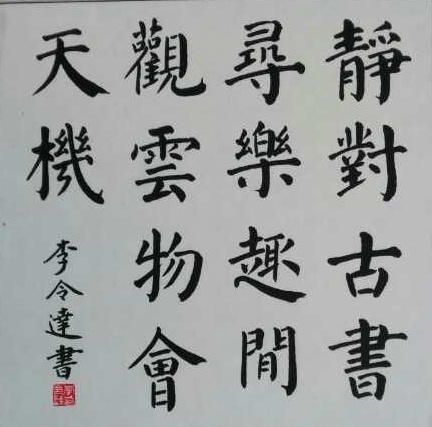 靜對古書
尋樂趣閒
觀雲物會
天機
李令達書